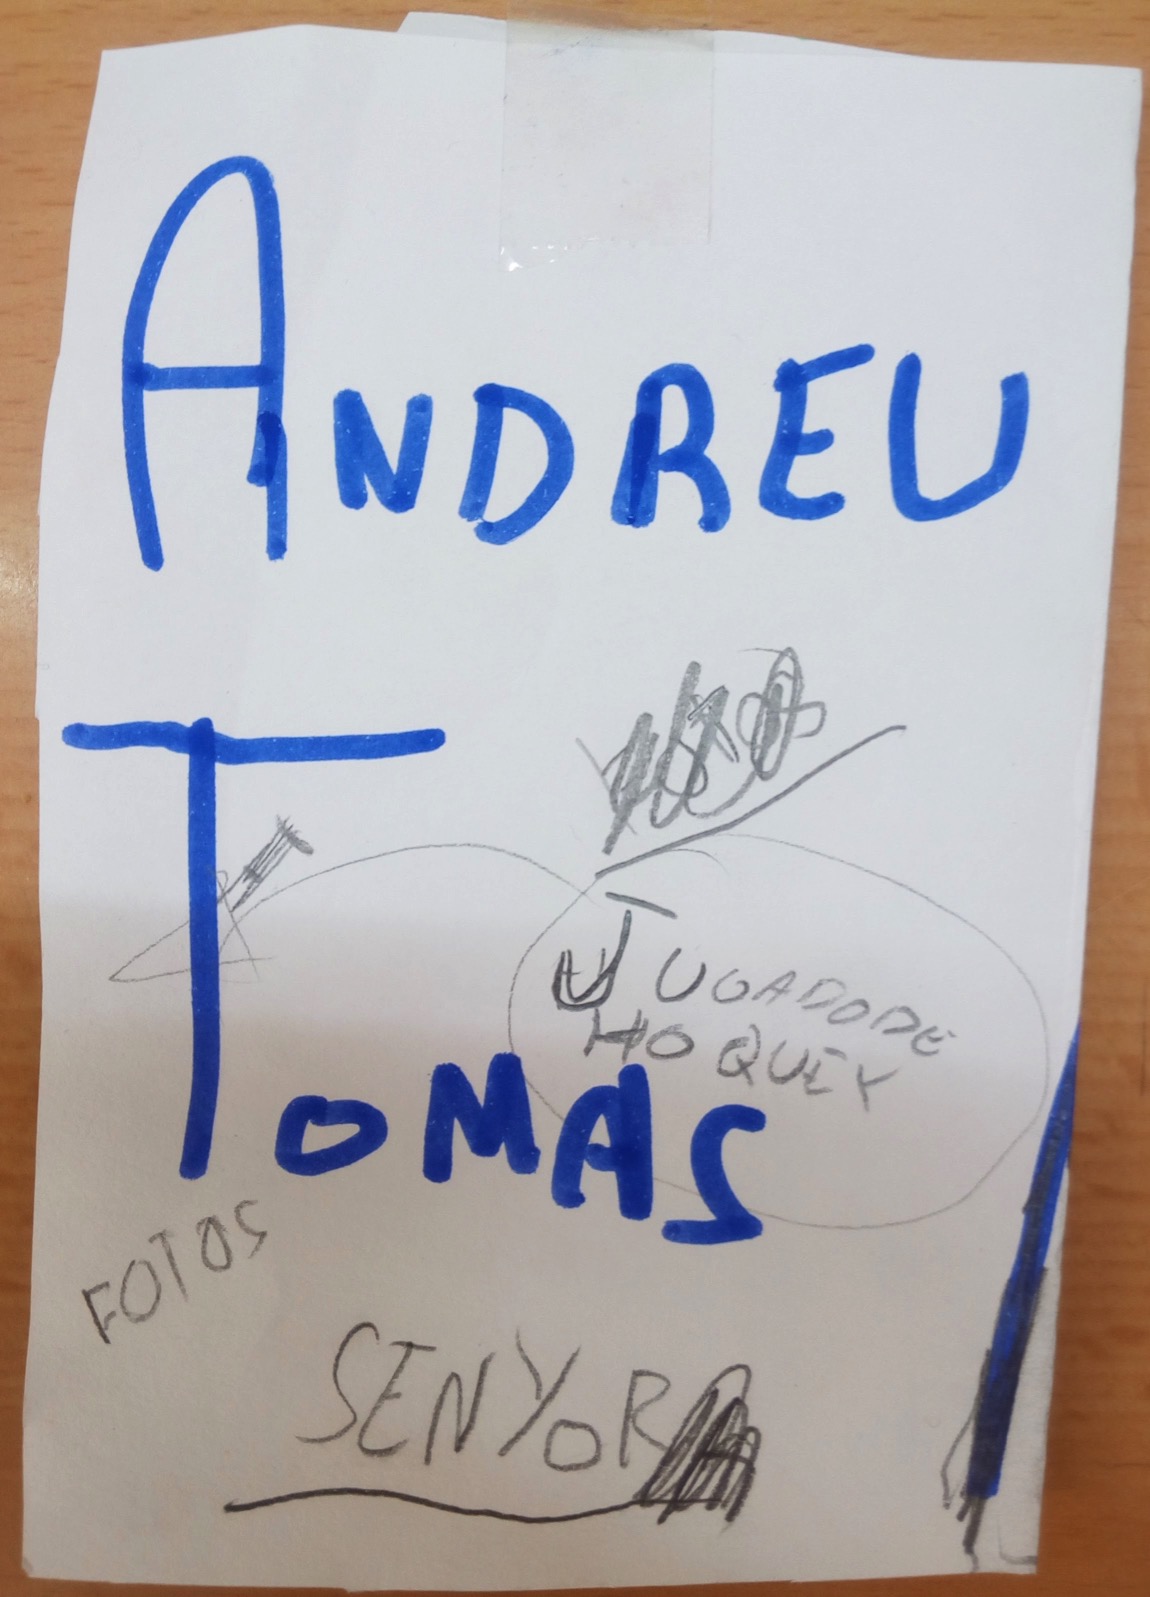 ANDREU
TOMAS
JUGADODE
HOQUEY
FOTOS
SENYOR